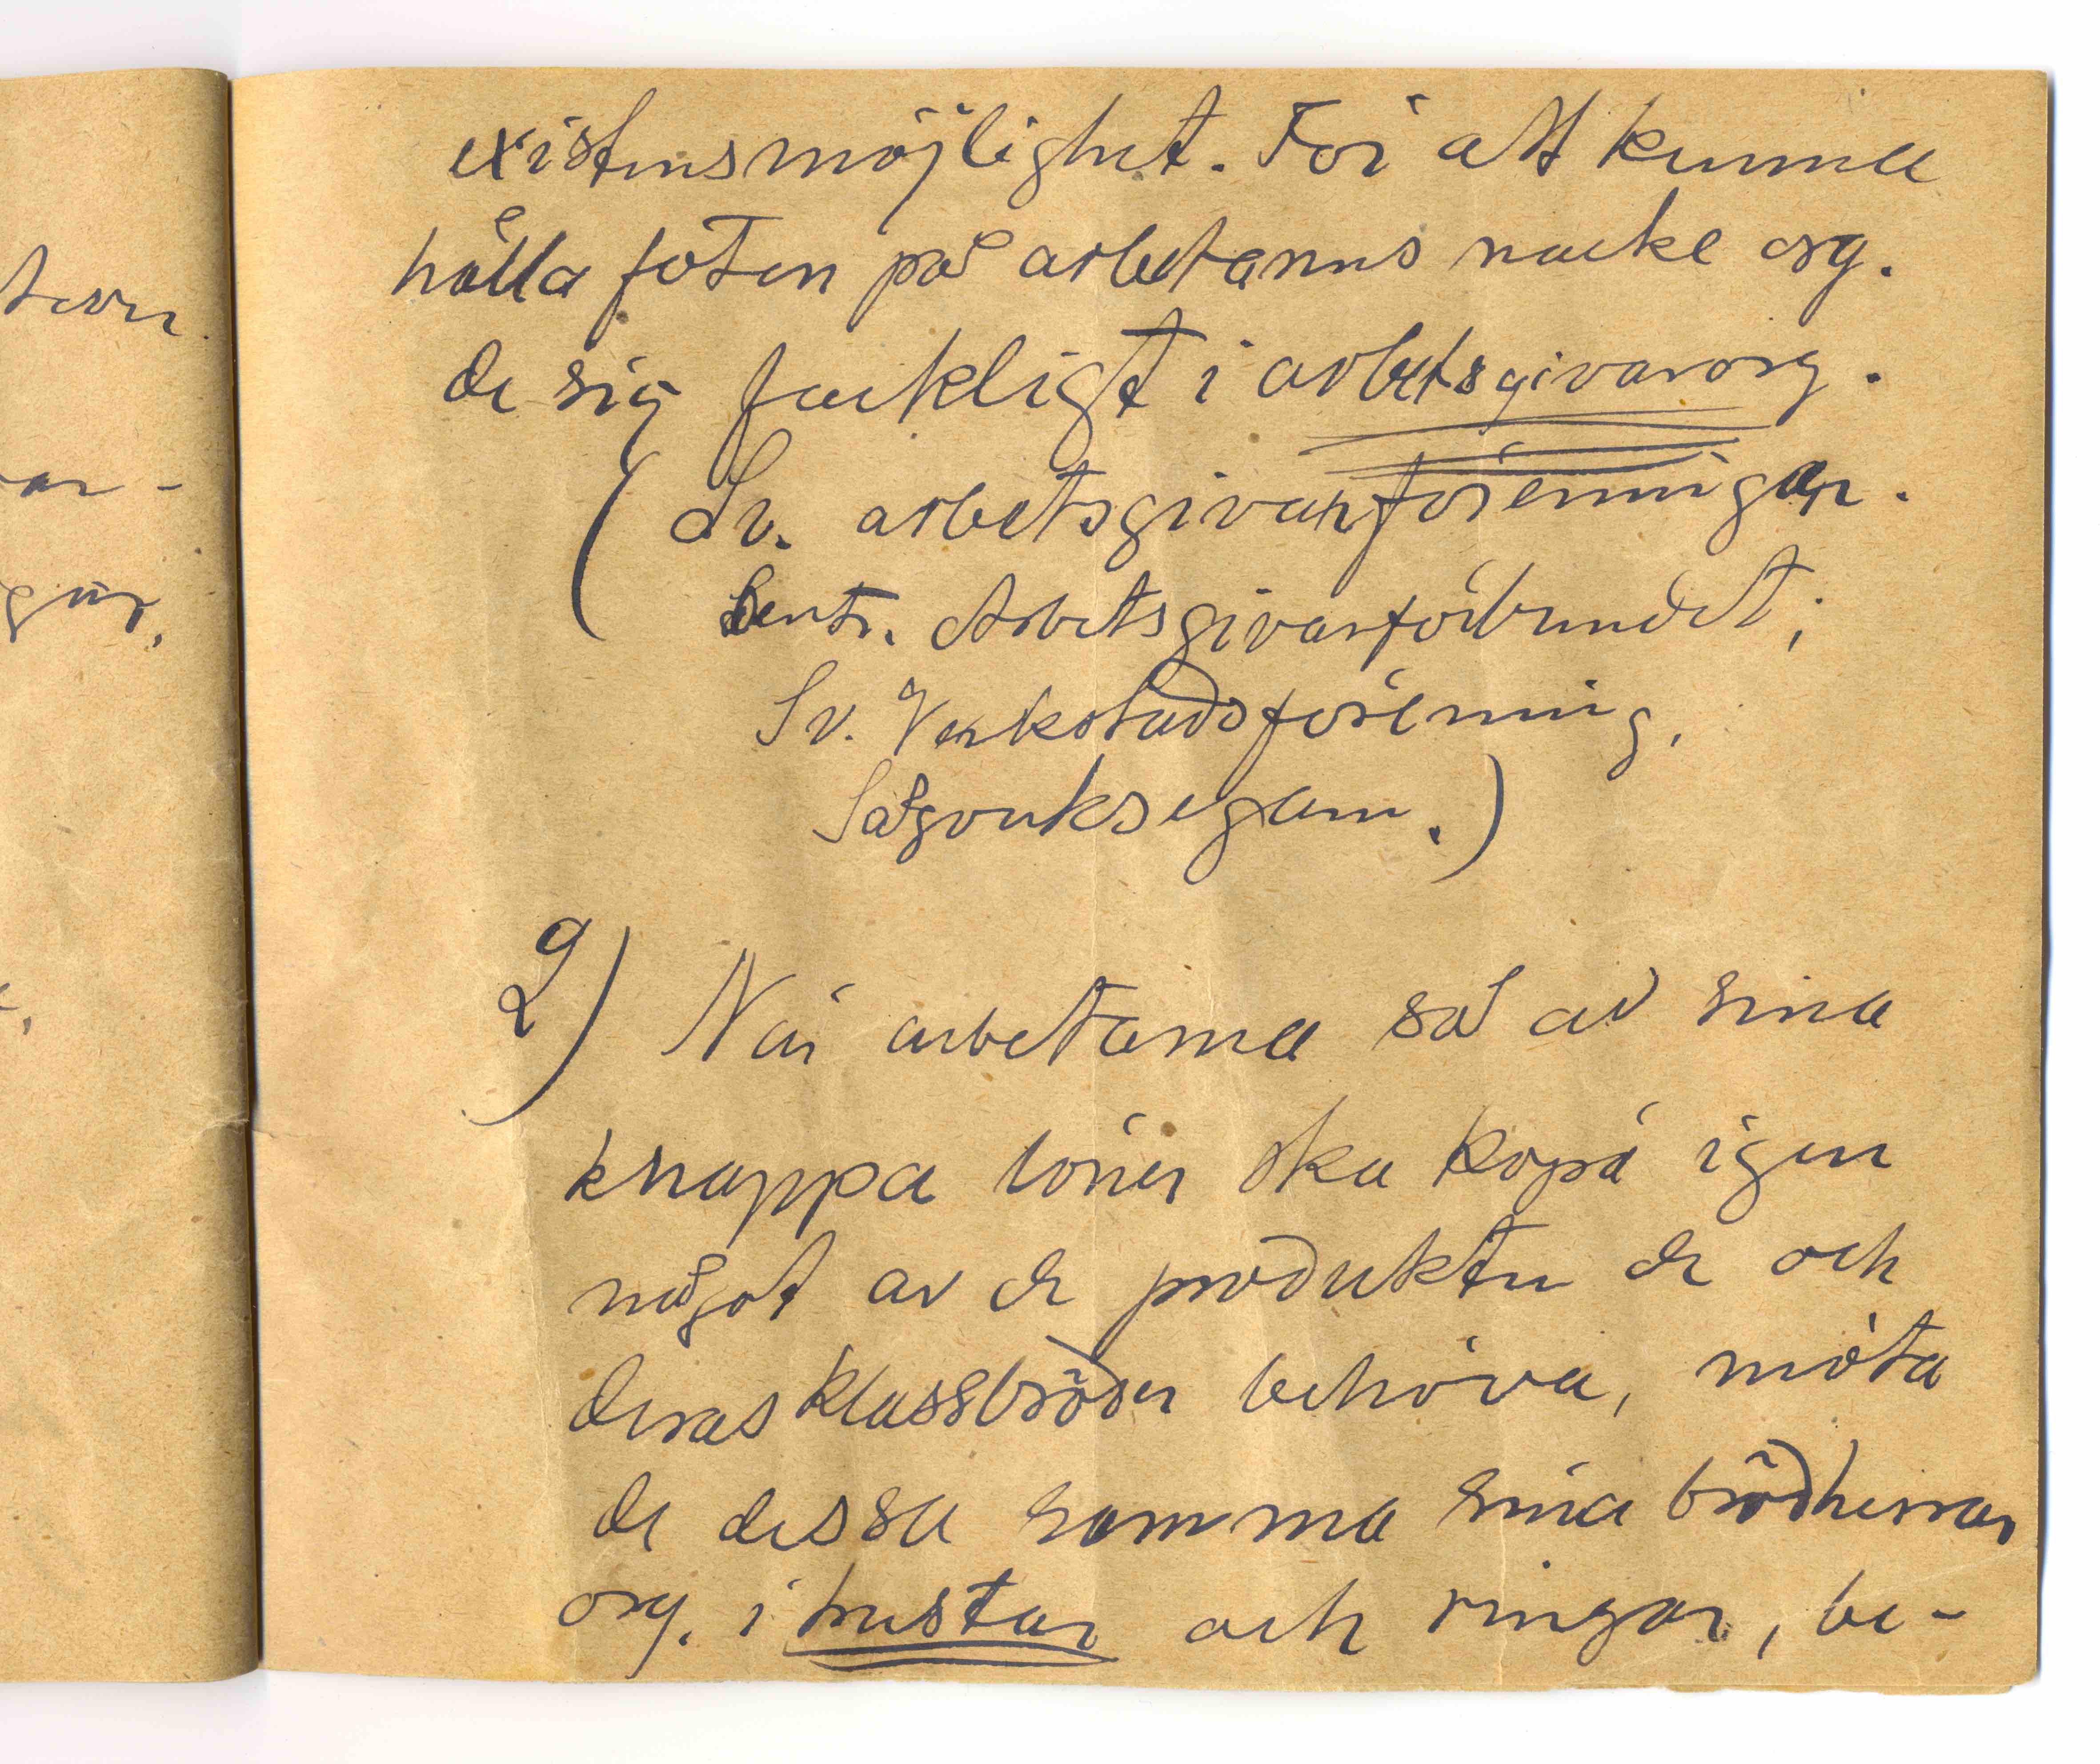 existensmöjlighet. För att kunna
hålla foten på arbetarnas nacke org.
de sig fackligt i arbetsgivarorg.
(Sv. arbetsgivarföreningen.
Centr. Arbetsgivarförbundet,
Sv. Verkstadsförening,
Sågverksegarn.)
2) När arbetarna så av sina
knappa löner ska köpa igen
något av de produkter de och
deras klassbröder behöva, möta
de dessa samma sina brödherrar
org. i trustar och ringar, be-